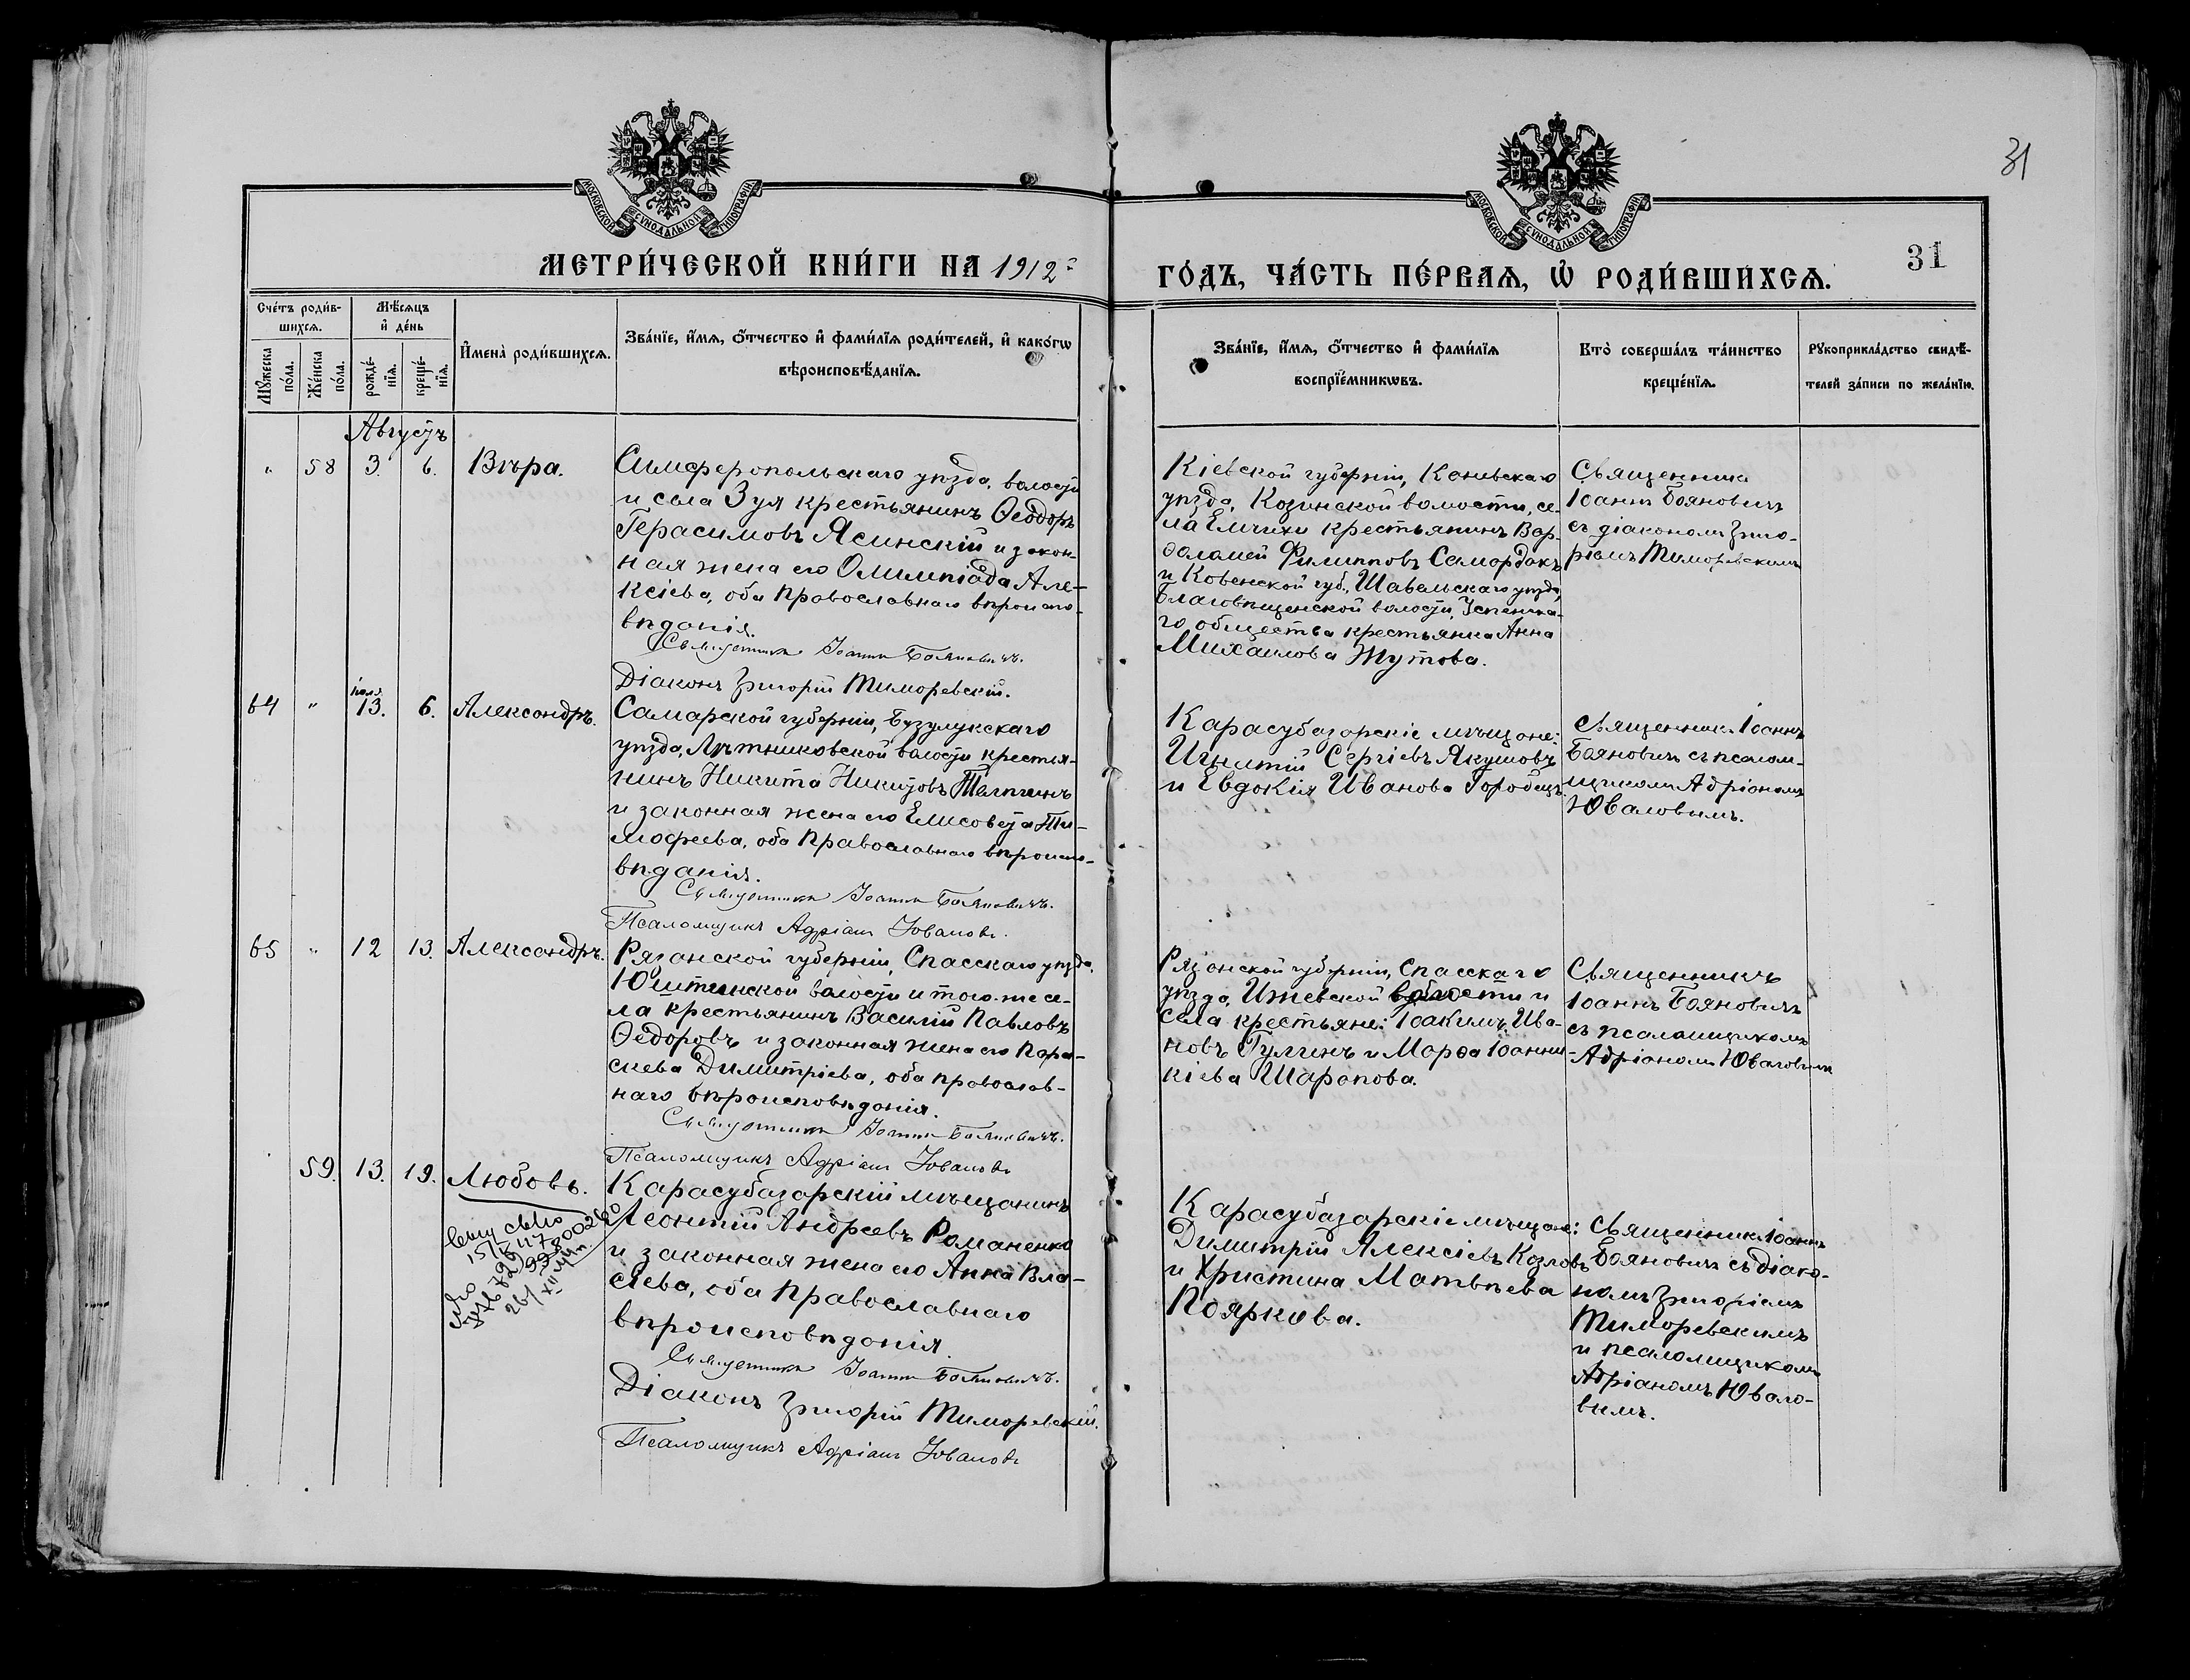 31
МОСКОВСКОЙ СѴНОДАЛЬНОЙ ТИПОГРАФІИ
МЕТРИ́ЧЕСКОЙ КНИ́ГИ НА 1912й
МОСКОВСКОЙ СѴНОДАЛЬНОЙ ТИПОГРАФІИ
31
ГО́ДЪ, ЧА́СТЬ ПЕ́РВАЯ, Ѡ҆ РОДИ́ВШИХСЯ.
Сче́тъ роди́в-
шихся.
Мꙋ́жеска
по́ла.
Же́нска
по́ла.
Мѣ́сяцъ
и҆ де́нь
рожде́-
нїя.
креще́-
нїя.
И҆мена̀ роди́вшихся.
Зва́нїе, и҆́мя, ѻ҆́тчество и҆ фами́лїя роди́телей, и҆ како́гѡ
вѣроисповѣ́данїя.
Зва́нїе, и҆́мя, ѻ҆́тчество и҆ фами́лїя
воспрїе́мникѡвъ.
Кто̀ соверша́лъ та́инство
креще́нїя.
Рꙋкоприкла́дство свидѣ́-
телей за́писи по жела́нїю.
Августъ
" 58 3. 6. Вѣра.
Симферопольскаго уѣзда, волости
и села Зуя крестьянинъ Ѳеодоръ
Герасимовъ Ясинскій и закон-
ная жена его Олимпіада Але-
ксіева, оба православнаго вѣроиспо-
вѣданія.
Священникъ Іоаннъ Бояновичъ.
Діаконъ Григорій Тиморевскій.
Кіевской губерніи, Каневскаго
уѣзда, Козинской волости, се-
ла Емчихи крестьянинъ Вар-
ѳоломей Филипповъ Самордакъ
и Ковенской губ., Шавельскаго уѣзда,
Благовѣщенской волости,
го общества крестьянка Анна
Михаилова Жутова.
Священникъ
Іоаннъ Бояновичъ
съ діакономъ Григо-
ріемъ Тиморевскимъ
64 " іюля 13. 6. Александръ.
Самарской губерніи, Бузулукскаго
уѣзда, Лѣтниковской волости крестья-
нинъ Никита Никитовъ
и законная жена его Елисавета Ти-
мофеева, оба православнаго вѣроиспо-
вѣданія.
Священникъ Іоаннъ Бояновичъ.
Псаломщикъ Адріанъ Юваловъ.
Карасубазарскіе мѣщане:
Игнатій Сергіевъ Якушовъ
и Евдокія Иванова Городецъ.
Священникъ Іоаннъ
Бояновичъ съ псалом-
щикомъ Адріаномъ
Юваловымъ.
65 " 12 13. Александръ.
Рязанской губерніи, Спасскаго уѣзда,
Юштинской волости и того-же се-
ла крестьянинъ Василій Павловъ
Ѳедоровъ и законная жена его Пара-
скева Димитріева, оба православ-
наго вѣроисповѣданія.
Священникъ Іоаннъ Бояновичъ.
Псаломщикъ Адріанъ Юваловъ
Рязанской губерніи, Спасскаго
уѣзда, Ижевской волости и
села крестьяне: Іоакимъ Ива-
новъ Гулинъ и Марѳа Іоанни-
кіева Шарапова.
Священникъ
Іоаннъ Бояновичъ
съ псаломщикомъ
Адріаномъ Юваловымъ
59. 13. 19. Любовь.
Карасубазарскій мѣщанинъ
Леонтій Андреевъ Романенко
и законная жена его Анна Вла-
сіева, оба православнаго
вѣроисповѣданія.
Священникъ Іоаннъ Бояновичъ.
Діаконъ Григорій Тиморевскій.
Псаломщикъ Адріанъ Юваловъ
Карасубазарскіе мѣщане:
Димитрій Алексіевъ Козловъ
и Христина Матвѣева
Пояркова.
Священникъ Іоаннъ
Бояновичъ съ діако-
номъ Григоріемъ
Тиморевскимъ
и псаломщикомъ
АдріаномъЮвало-
вымъ.